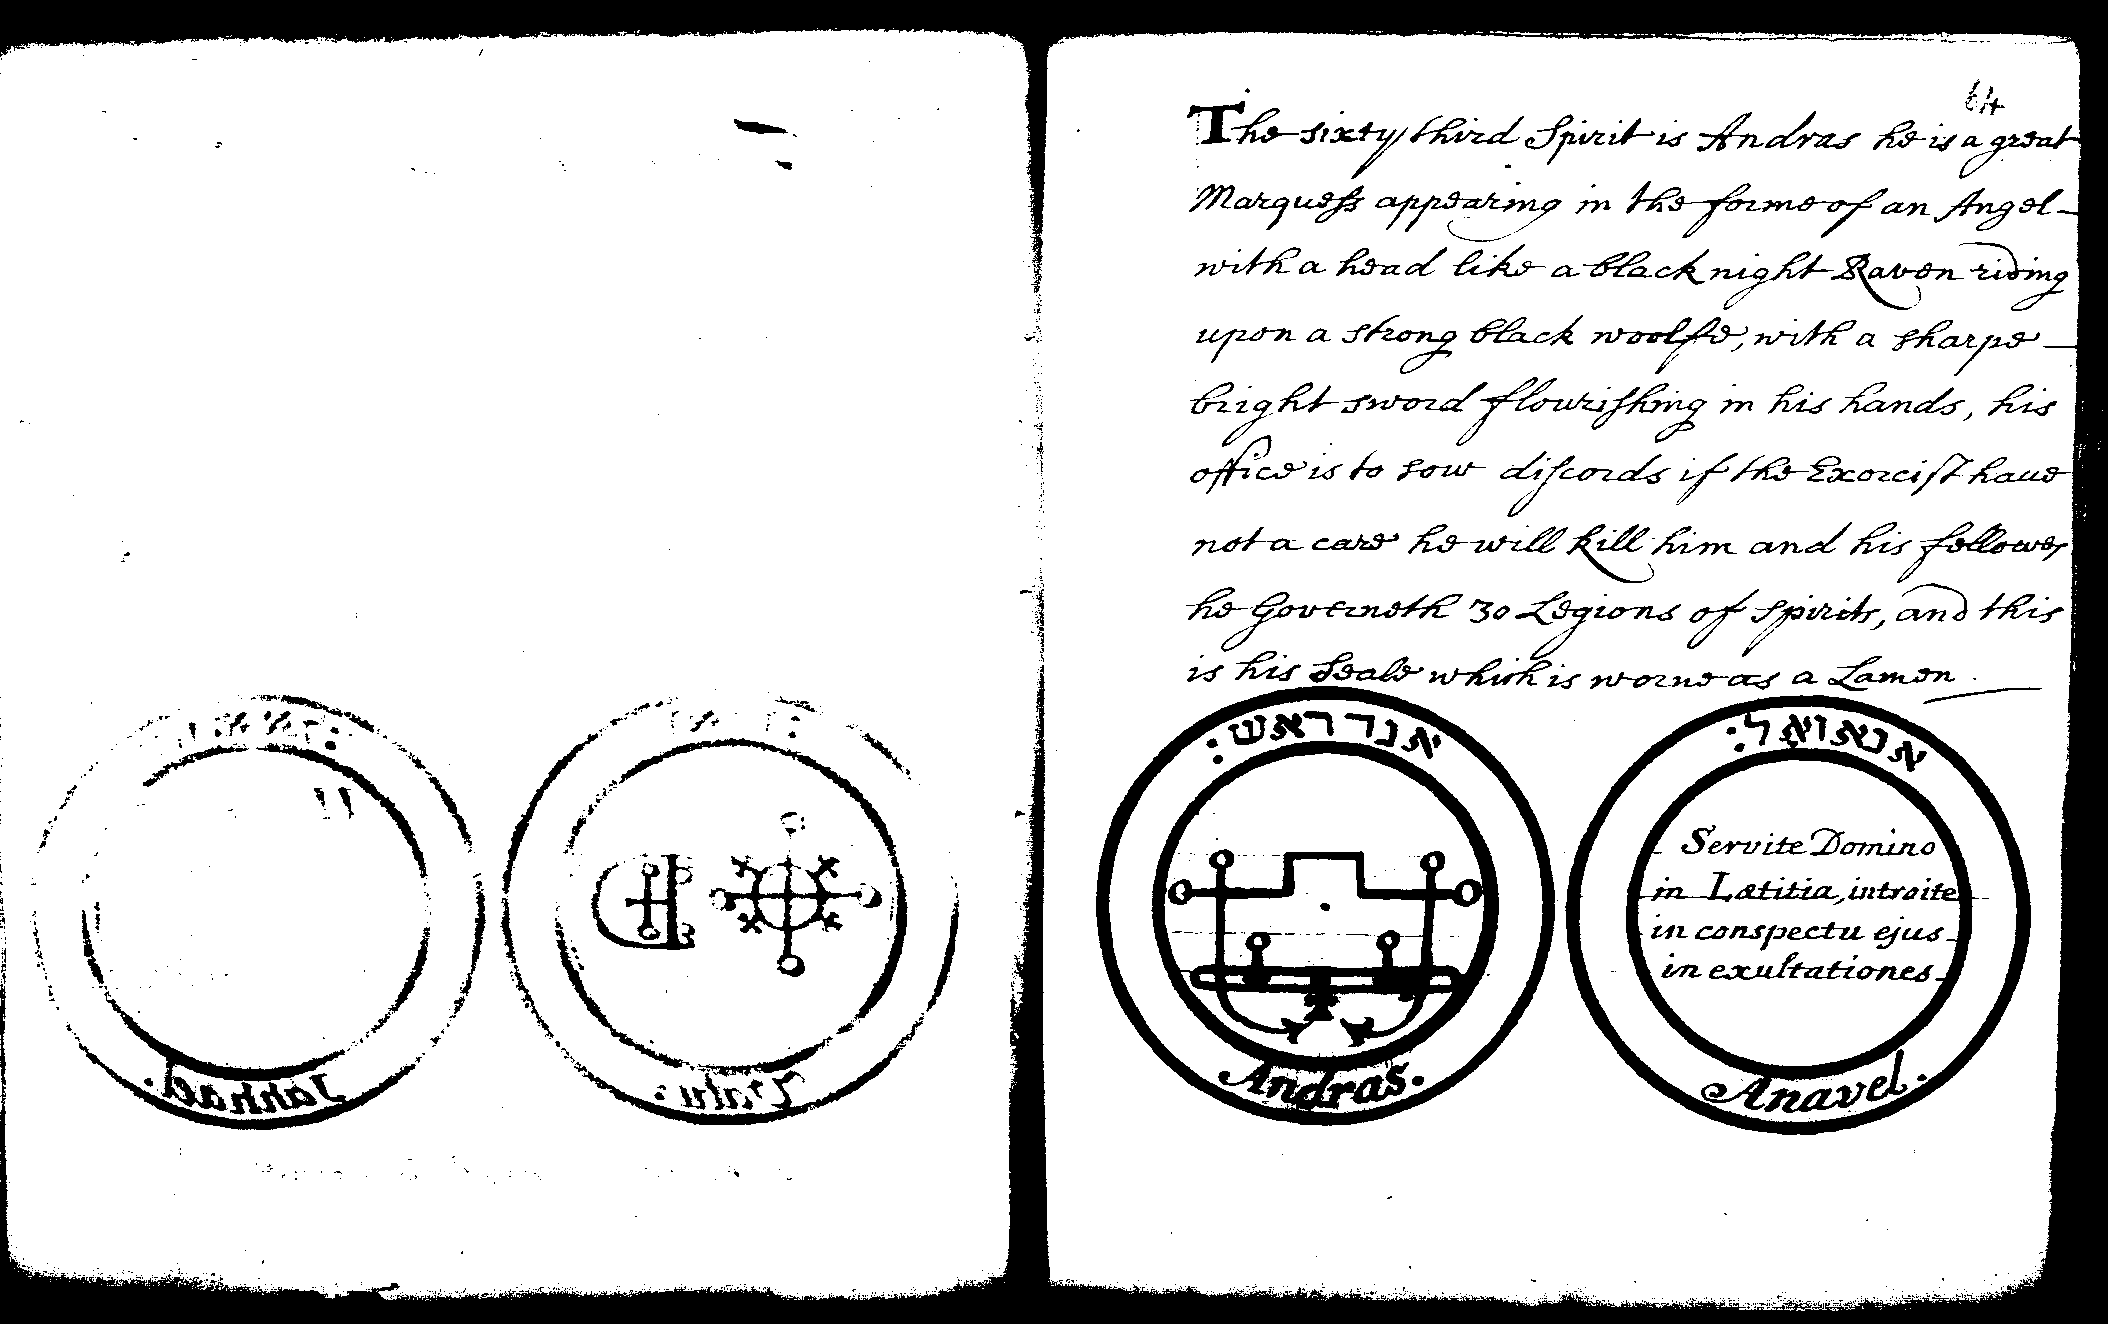 64
The sixty third Spirit is Andras he is a great
Marquess appearing in the forme of an Angel
with a head like a black night Raven riding
upon a strong black woolfe, with a sharpe
bright sword flourishing in his hands, his
office is to sow discords if the Exorcist haue
not a care he will kill him and his fellowes
he Governeth 30 Legions of Spirits, and this
is his Seale which is worne as a Lamen
אנדראש:
Andras.
אנאואל:
Servite Domino
in Lætitia, introite
in conspectu ejus
in exultationes
Anavel.
Jahhael.